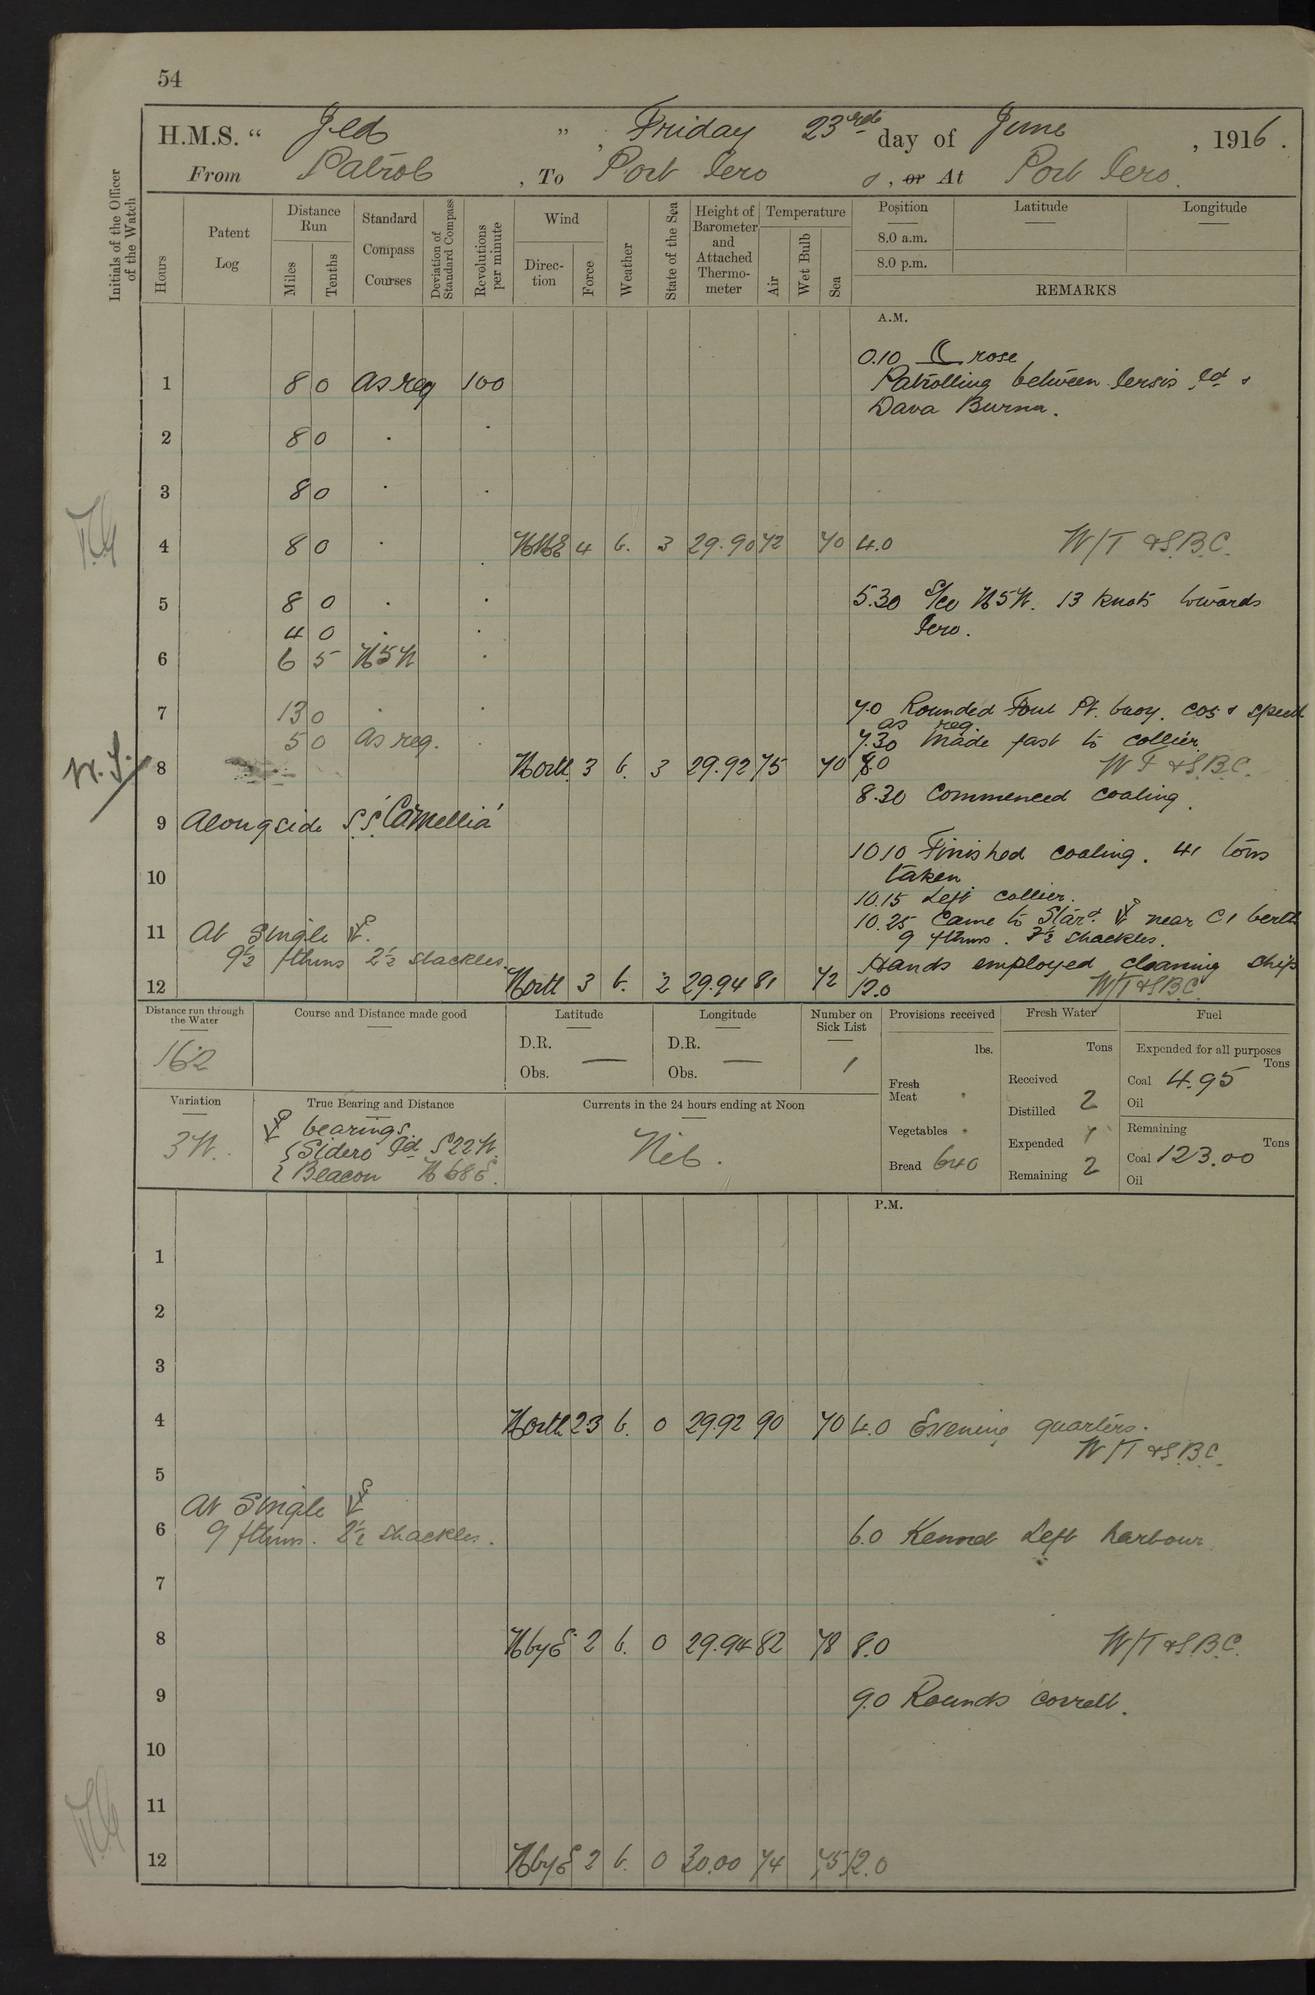 54
H.M.S. “ Jed ”, Friday 23rd day of June, 1916.
From Patrol, To Port Iero, or At Port Iero.
Initials of the Officer of the Watch
Hours
Patent Log
Distance Run
Miles
Tenths
Standard Compass Courses
Deviation of Standard Compass
Revolutions per minute
Wind
Direction
Force
Weather
State of the Sea
Height of Barometer and Attached Thermometer
Temperature
Air
Wet Bulb
Sea
Position
Latitude
Longitude
8.0 a.m.
8.0 p.m.
REMARKS
A.M.
0.10 rose
1 8 0 as req 100 Patrolling between Iersis Id &
Dava Burnu.
2 8 0 . .
3 8 0 . .
4 8 0 . . NNE 4 b. 3 29.90 72 70 4.0 W/T & S.B.C.
5 8 0 . . 5.30 S/Co N5W. 13 knots towards
4 0 . . Iero.
6 6 5 N5W .
7 13 0 . . 7.0 Rounded Foul Pt. buoy. cos & speed
as req.
5 0 as req. . 7.30 Made fast to collier
8 North 3 b. 3 29.92 75 70 8.0 W T & S.B.C.
8.30 Commenced coaling.
9 Alongside S.S. 'Camellia'
10.10 Finished coaling. 41 tons
10 taken
10.15 Left collier.
11 At Single 10.25 Came to Stard near C1 berth
9 fthms. 2½ shackles.
9½ fthms 2½ shackles. Hands employed cleaning ship
12 North 3 b. 2 29.94 81 72 12.0 W/T & S.B.C.
Distance run through the Water
162
Course and Distance made good
Latitude
D.R.
Obs.
Longitude
D.R.
Obs.
Number on Sick List
1
Provisions received
lbs.
Fresh Meat
Vegetables
Bread 640
Fresh Water
Tons
Received
Distilled 2
Expended
Remaining 2
Fuel
Expended for all purposes
Tons
Coal 4.95
Oil
Remaining
Tons
Coal 123.00
Oil
Variation
3W.
True Bearing and Distance
bearings
Sidero Id S22W.
Beacon N68E.
Currents in the 24 hours ending at Noon
Nil.
P.M.
1
2
3
4 North 23 b. 0 29.92 90 70 4.0 Evening quarters.
W/T & S.B.C.
5
At Single
6 9 fthms. 2½ shackles. 6.0 Kennet Left harbour
7
8 N by E 2 b. 0 29.94 82 78 8.0 W/T & S.B.C.
9 9.0 Rounds correct.
10
11
12 N by E 2 b. 0 30.00 74 75 12.0